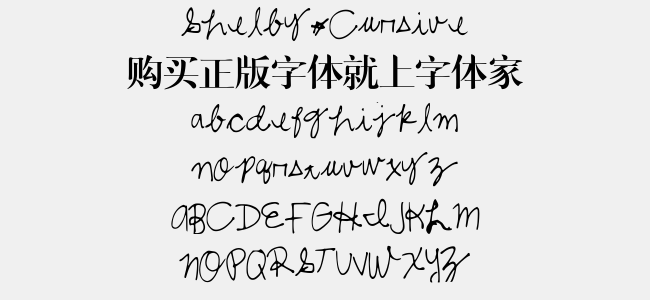 Shelby *Cursive
购买正版字体就上字体家
abcdefghijklm
nopqrstuvwxyz
ABCDEFGHIJKLM
NOPQRSTUVWXYZ